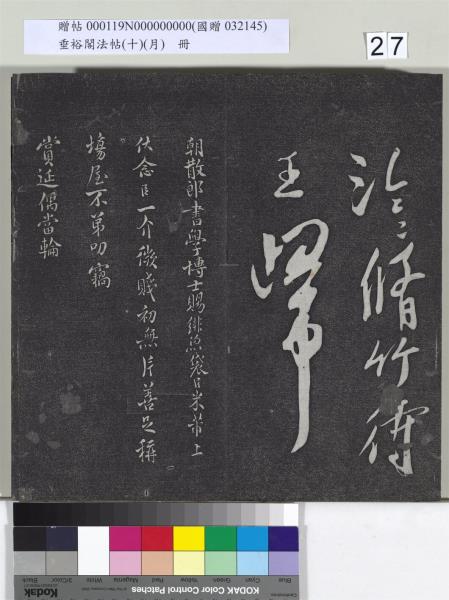 贈帖 000119N000000000(國贈 032145)
垂裕閣法帖(十)(月) 冊
27
泠脩竹傳
王
朝散郎書學博士賜緋魚袋臣米芾上
伏念臣一介微賤初無片善足稱
場屋不第叨竊
賞延偶當輪
Blue
Cyan
Green
Yellow
Red
Magenta
White
3/Color
Black
KODAK Color Control Patches